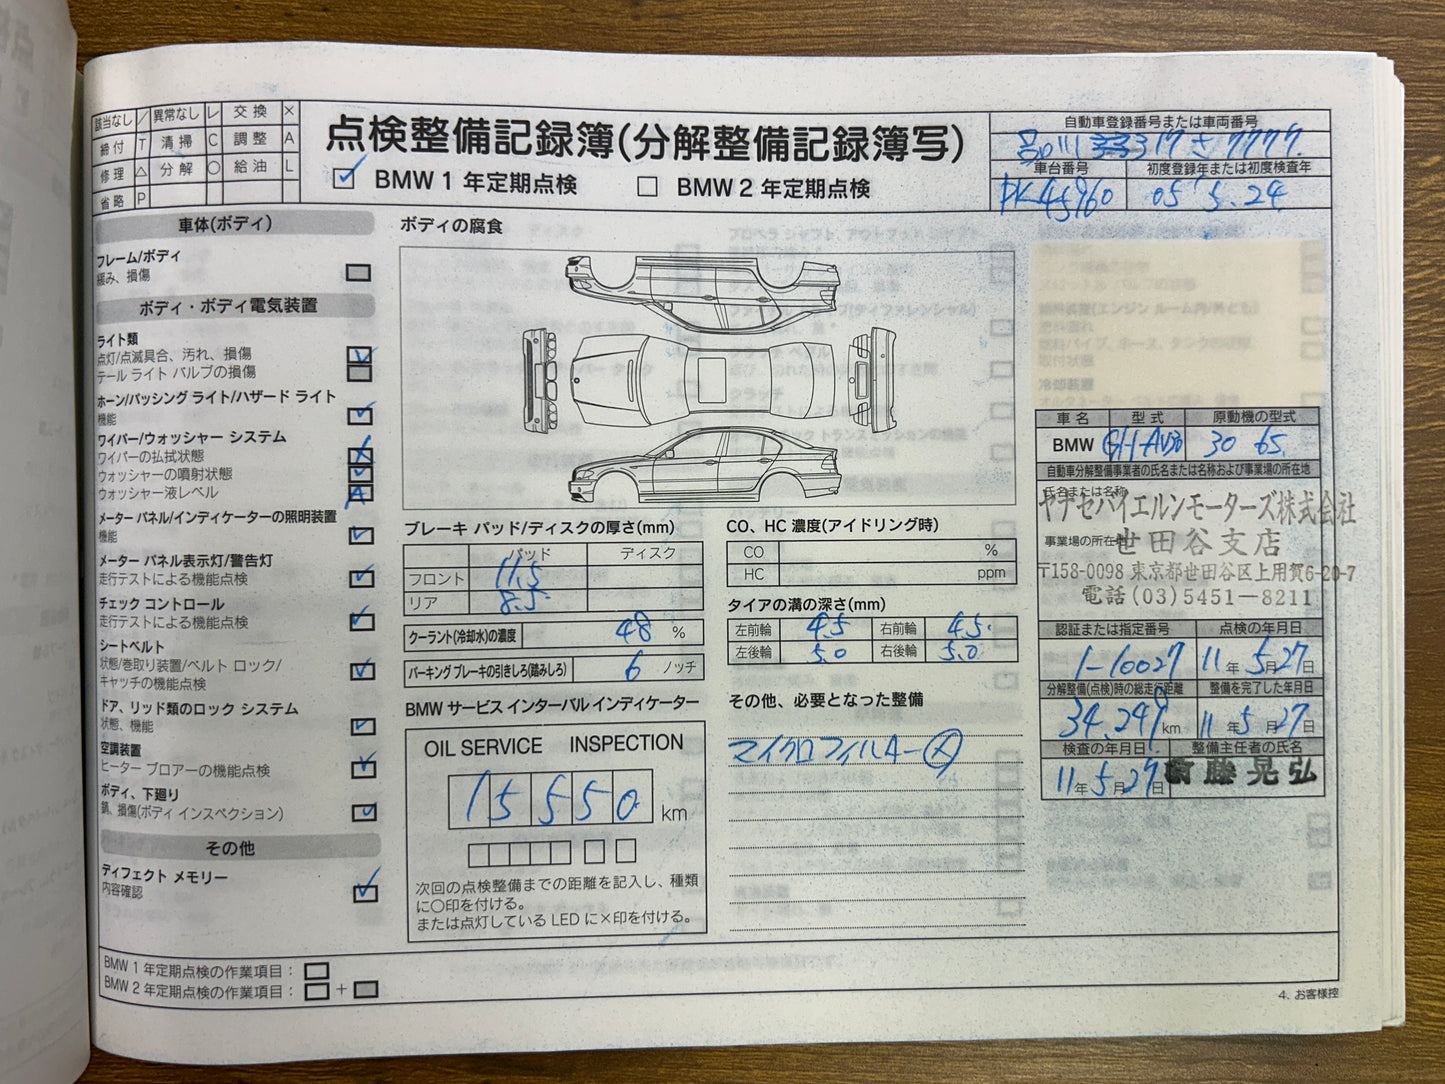 該当なし / 異常なし レ 交換 ×
締付 T 清掃 C 調整 A
修理 △ 分解 ○ 給油 L
省略 P
点検整備記録簿(分解整備記録簿写)
BMW 1 年定期点検 BMW 2 年定期点検
自動車登録番号または車両番号
車台番号 初度登録年または初度検査年
PK45960 05.5.24
車体(ボディ)
フレーム/ボディ
緩み、損傷
ボディ・ボディ電気装置
ライト類
点灯/点滅具合、汚れ、損傷
テール ライト バルブの損傷
ホーン/パッシング ライト/ハザード ライト
機能
ワイパー/ウォッシャー システム
ワイパーの払拭状態
ウォッシャーの噴射状態
ウォッシャー液レベル A
メーター パネル/インディケーターの照明装置
機能
メーター パネル表示灯/警告灯
走行テストによる機能点検
チェック コントロール
走行テストによる機能点検
シートベルト
状態/巻取り装置/ベルト ロック/
キャッチの機能点検
ドア、リッド類のロック システム
状態、機能
空調装置
ヒーター ブロアーの機能点検
ボディ、下廻り
錆、損傷(ボディ インスペクション)
その他
ディフェクト メモリー
内容確認
ボディの腐食
ブレーキ パッド/ディスクの厚さ(mm)
パッド ディスク
フロント 11.5
リア 8.5
クーラント(冷却水)の濃度 48 %
パーキング ブレーキの引きしろ(踏みしろ) 6 ノッチ
BMW サービス インターバル インディケーター
OIL SERVICE INSPECTION
15550 km
次回の点検整備までの距離を記入し、種類
に○印を付ける。
または点灯している LED に×印を付ける。
CO、HC 濃度(アイドリング時)
CO %
HC ppm
タイアの溝の深さ(mm)
左前輪 4.5 右前輪 4.5
左後輪 5.0 右後輪 5.0
その他、必要となった整備
マイクロフィルター
車名 型式 原動機の型式
BMW GH-AV30 30 6S
自動車分解整備事業者の氏名または名称および事業場の所在地
氏名または名称
ヤナセバイエルンモーターズ株式会社
事業場の所在地 世田谷支店
〒158-0098 東京都世田谷区上用賀6-20-7
電話(03)5451-8211
認証または指定番号 点検の年月日
1-10027 11年 5月27日
分解整備(点検)時の総走行距離 整備を完了した年月日
34.249 km 11年 5月27日
検査の年月日 整備主任者の氏名
11年5月27日 齋藤晃弘
BMW 1 年定期点検の作業項目:
BMW 2 年定期点検の作業項目: +
4. お客様控